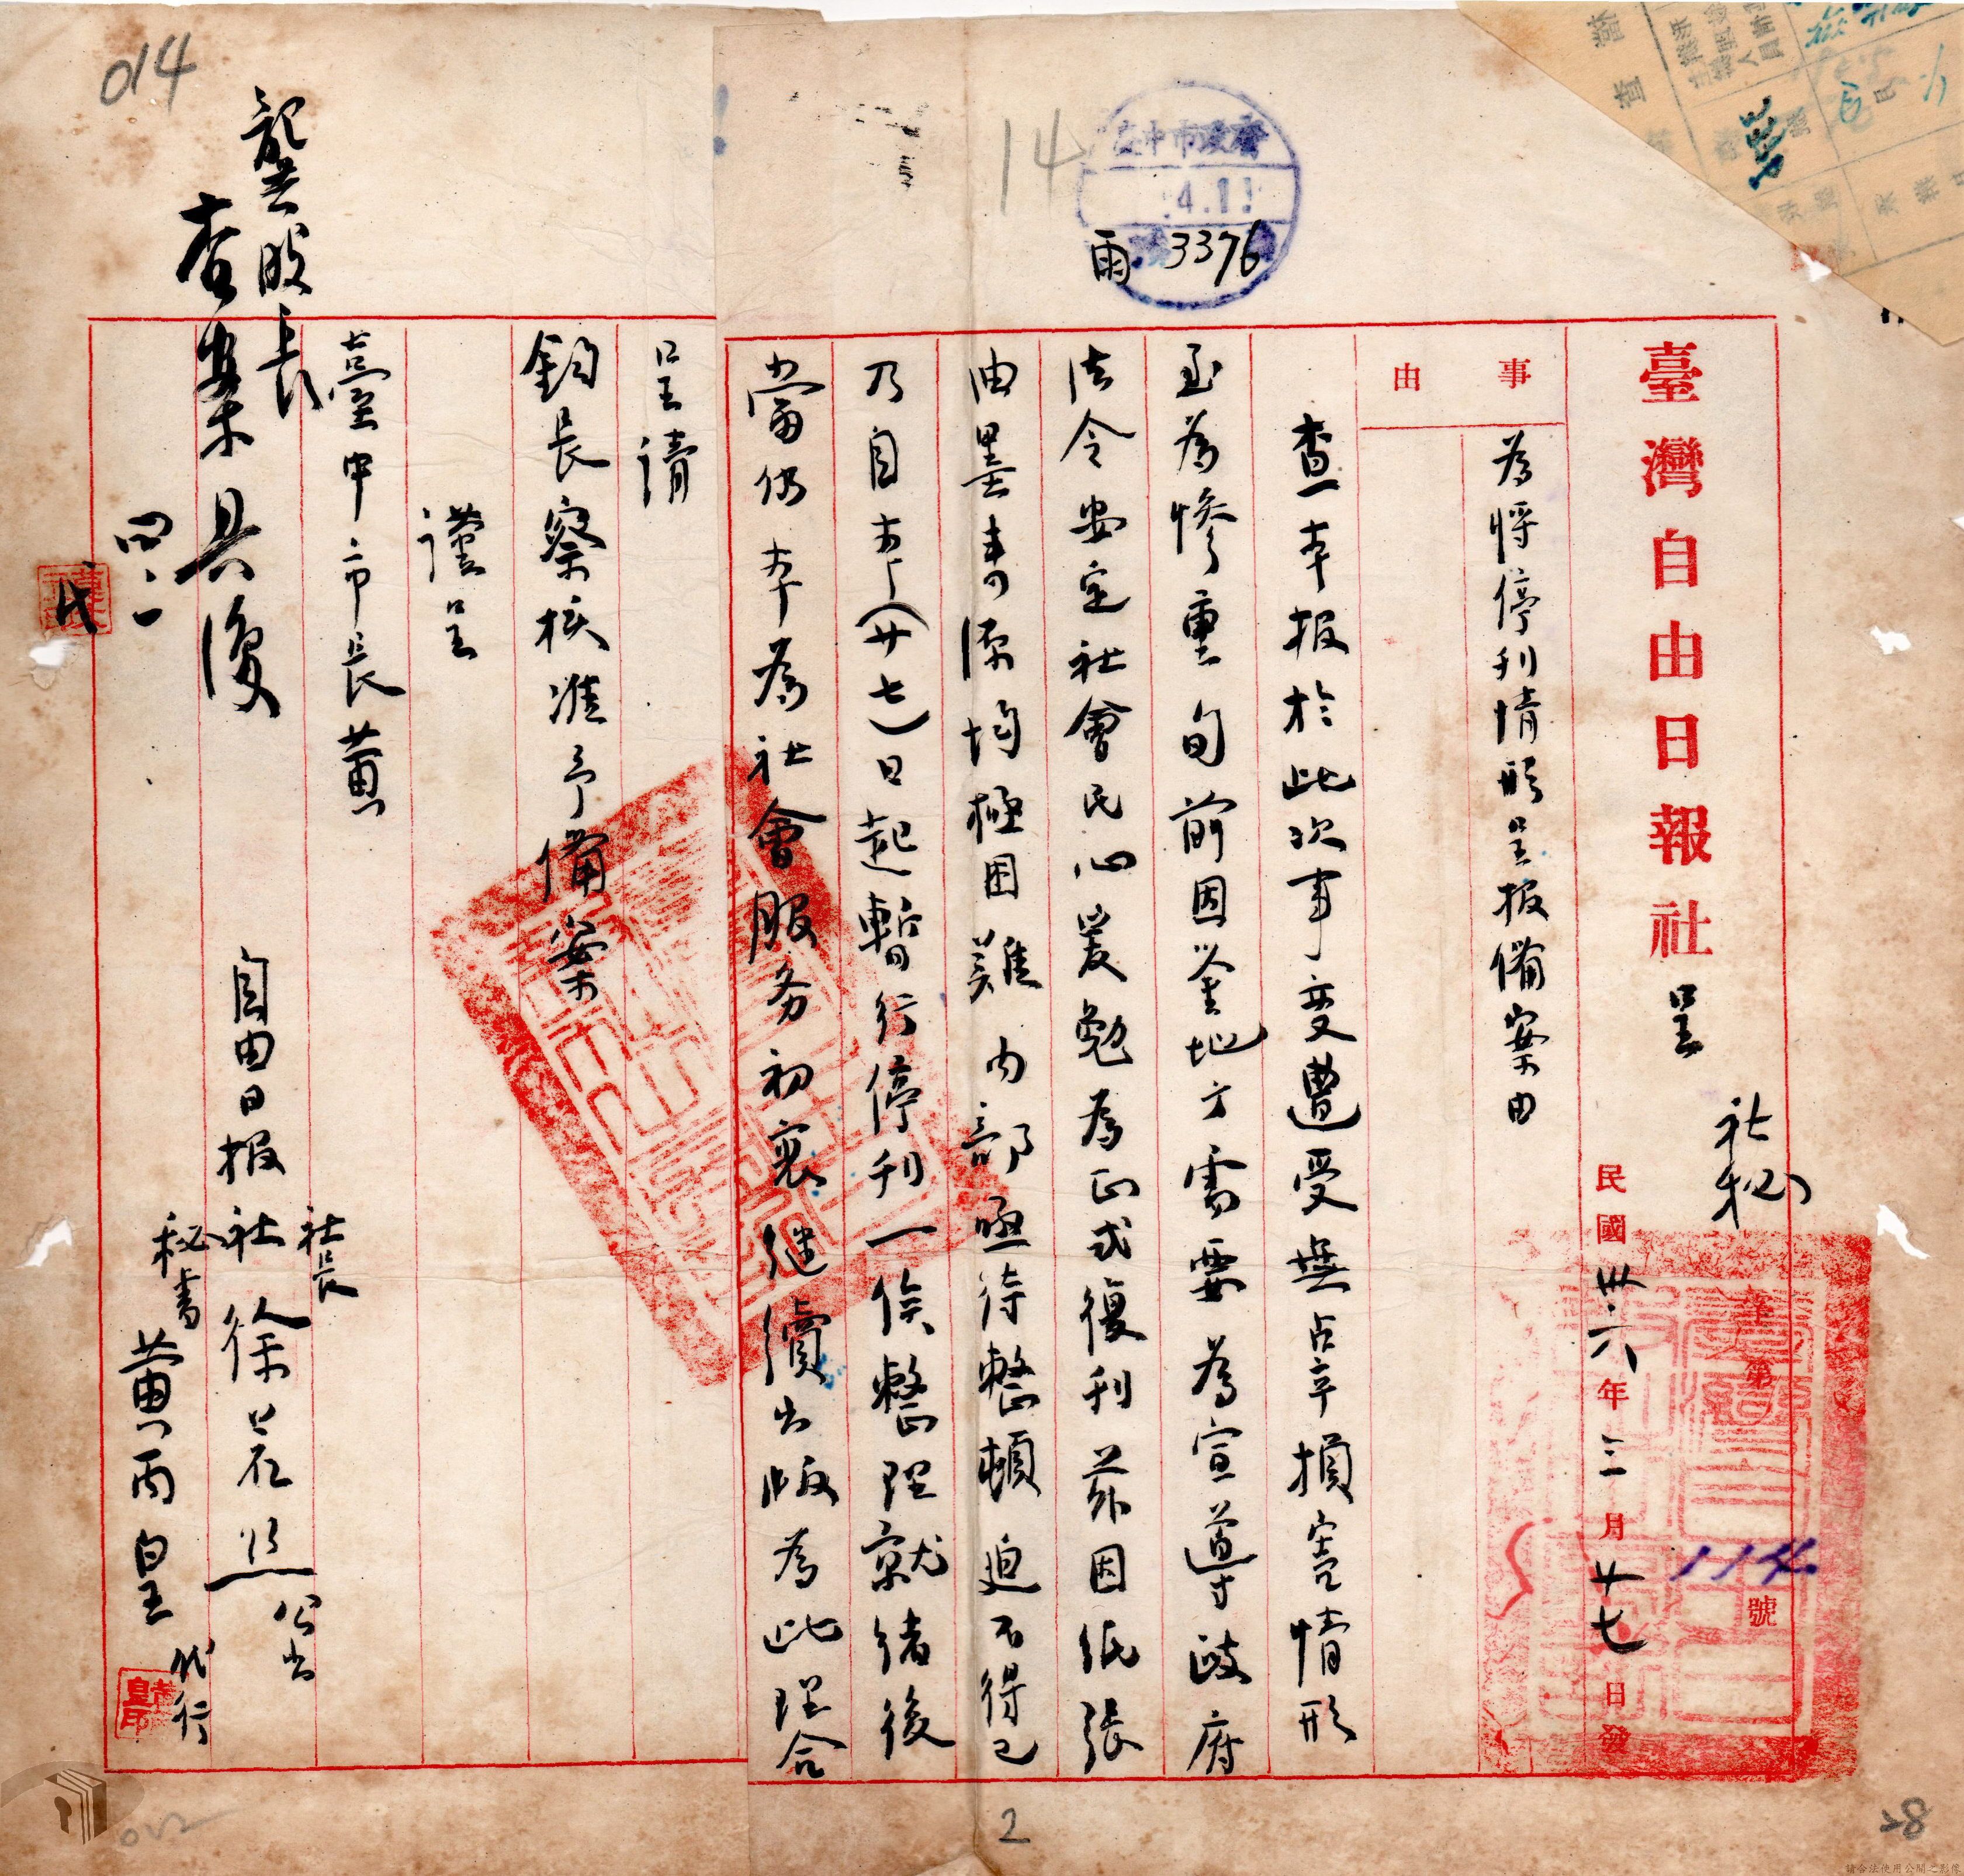 臺灣自由日報社 呈
社秘
字第 114 號
民國卅六年三月廿七日發
事由
為将停刊情形呈报備案由
查本报於此次事变遭受無占辛損害情形
至為惨重旬前因鉴地方需要為宣導政府
法令安定社會民心爰勉為正式復刊茲因紙張
油墨来源均極困難内部亟待整頓迫不得已
乃自本(廿七)日起暫行停刊一俟整理就绪後
當仍本為社會服务初衷继續出版為此理合
呈請
鈞長察核准予備案
謹呈
臺中市長黄
社長
自由日报社徐
公出
秘書
黄丙皇
代行
龔股長
查案具復
四、一
014
14
臺中市政府
4.1
雨 3376
2
28
請合法使用公開之影像